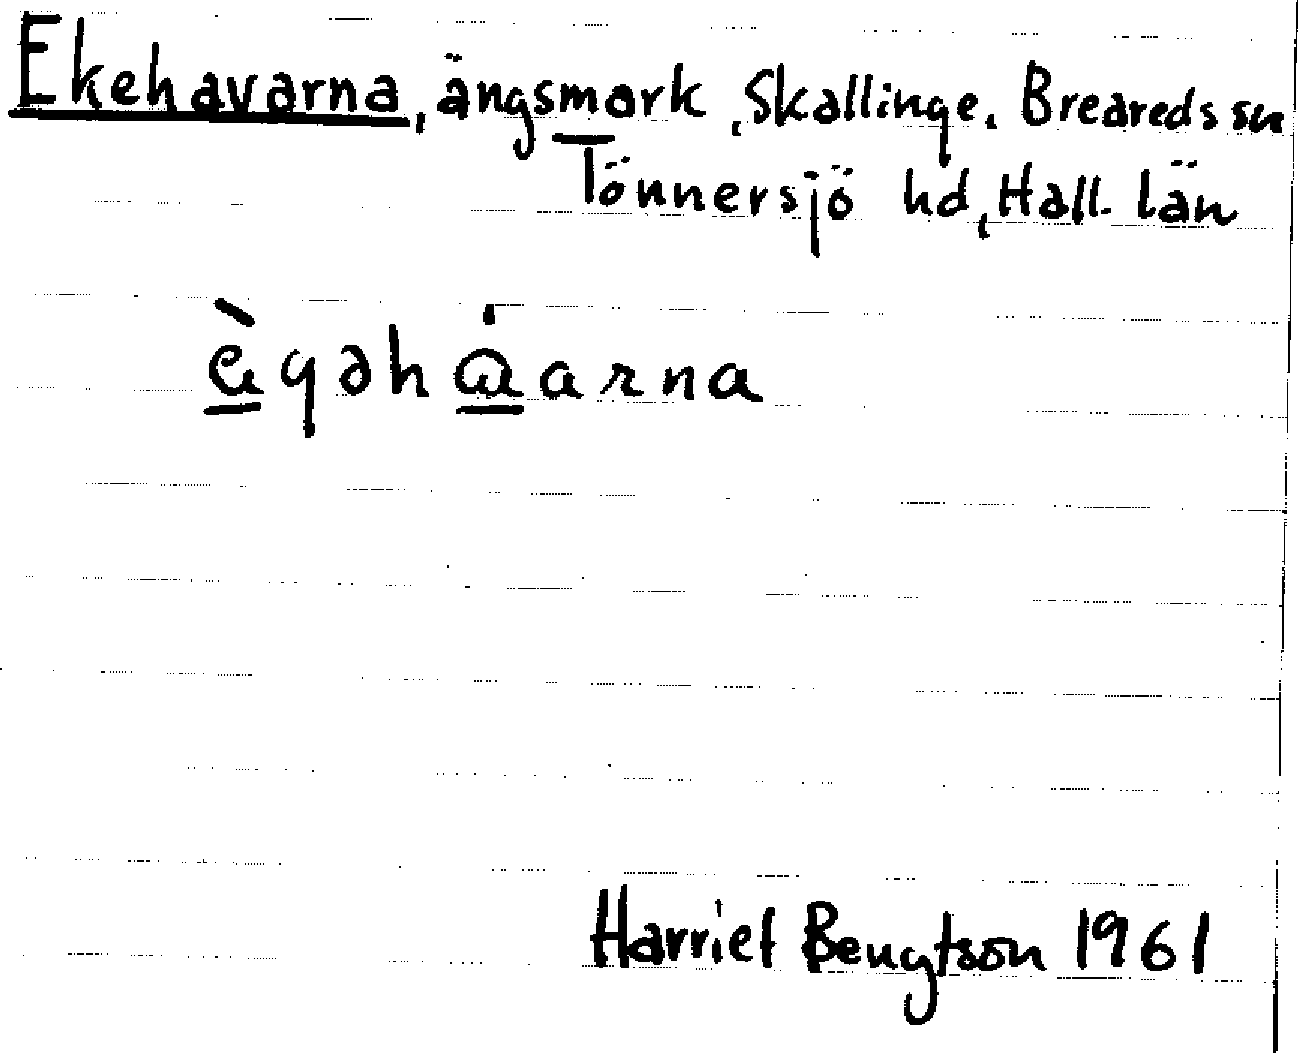 Ekehavarna, ängsmark, Skallinge. Breareds sn
Tönnersjö hd, Hall. län
è̱gəhɑ̱́arna
Harriet Bengtson 1961